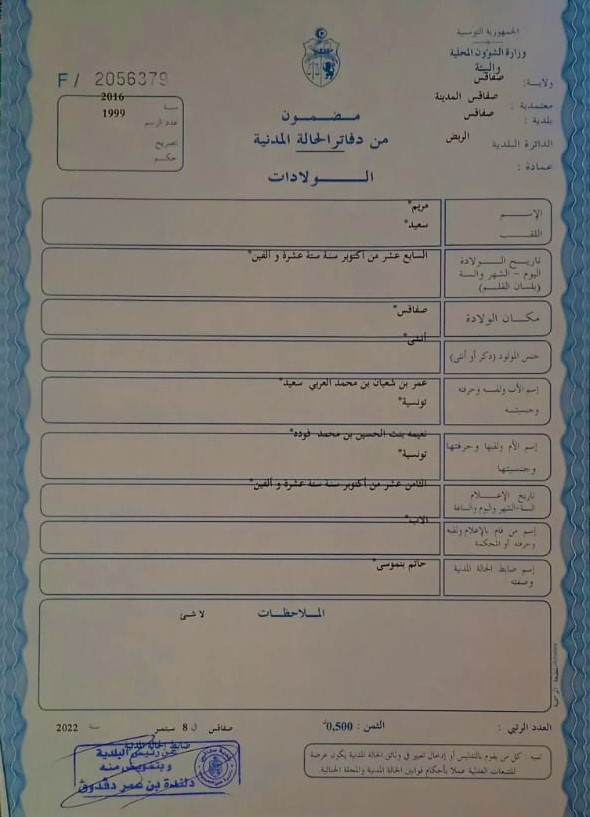 الجمهورية التونسية
وزارة الشؤون المحلية
والبيئة
ولاية : صفاقس
معتمدية : صفاقس المدينة
بلدية : صفاقس
الدائرة البلدية الربض
عمادة :
F/ 2056379
سنة 2016
عدد الرسم 1999
تصريح
حكم
مضمون
من دفاتر الحالة المدنية
الولادات
الإسم مريم*
اللقب سعيد*
تاريخ الولادة السابع عشر من أكتوبر سنة ستة عشرة و ألفين*
اليوم - الشهر والسنة
(بلسان القلم)
مكان الولادة صفاقس*
جنس المولود (ذكر أو أنثى) أنثى*
إسم الأب ولقبه وحرفته عمر بن شعبان بن محمد العربي سعيد*
وجنسيته تونسية*
إسم الأم ولقبها وحرفتها نعيمه بنت الحسين بن محمد فوده*
وجنسيتها تونسية*
تاريخ الإعلام الثامن عشر من أكتوبر سنة ستة عشرة و ألفين*
السنة-الشهر واليوم والساعة
إسم من قام بالإعلام ولقبه الاب*
وحرفته أو المحكمة
إسم ضابط الحالة المدنية حاتم بنموسى*
وصفته
الملاحظات لا شئ
العدد الرتبي : الثمن : 0,500د
صفاقس في 8 سبتمبر سنة 2022
ضابط الحالة المدنية
عن رئيس البلدية
وبتفويض منه
دلندة بن عمر دقدوق
تنبيه : كل من يقوم بالتدليس أو إدخال تغيير في وثائق الحالة المدنية يكون عرضة
للتتبعات العدلية عملا بأحكام قوانين الحالة المدنية والمجلة الجنائية.